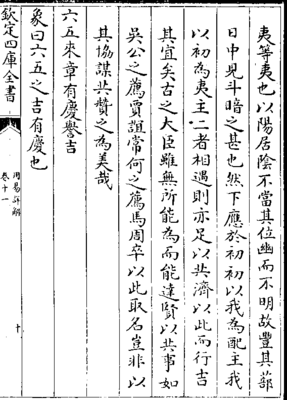 夷等夷也以陽居陰不當其位幽而不明故豐其蔀
日中見斗暗之甚也然下應於初初以我為配主我
以初為夷主二者相遇則亦足以共濟以此而行吉
其宜矣古之大臣雖無所能為而能達賢以共事如
吳公之薦賈誼常何之薦馬周卒以此取名豈非以
其協謀共贊之為美哉
六五來章有慶譽吉
象曰六五之吉有慶也
欽定四庫全書
周易詳解
卷十一
十